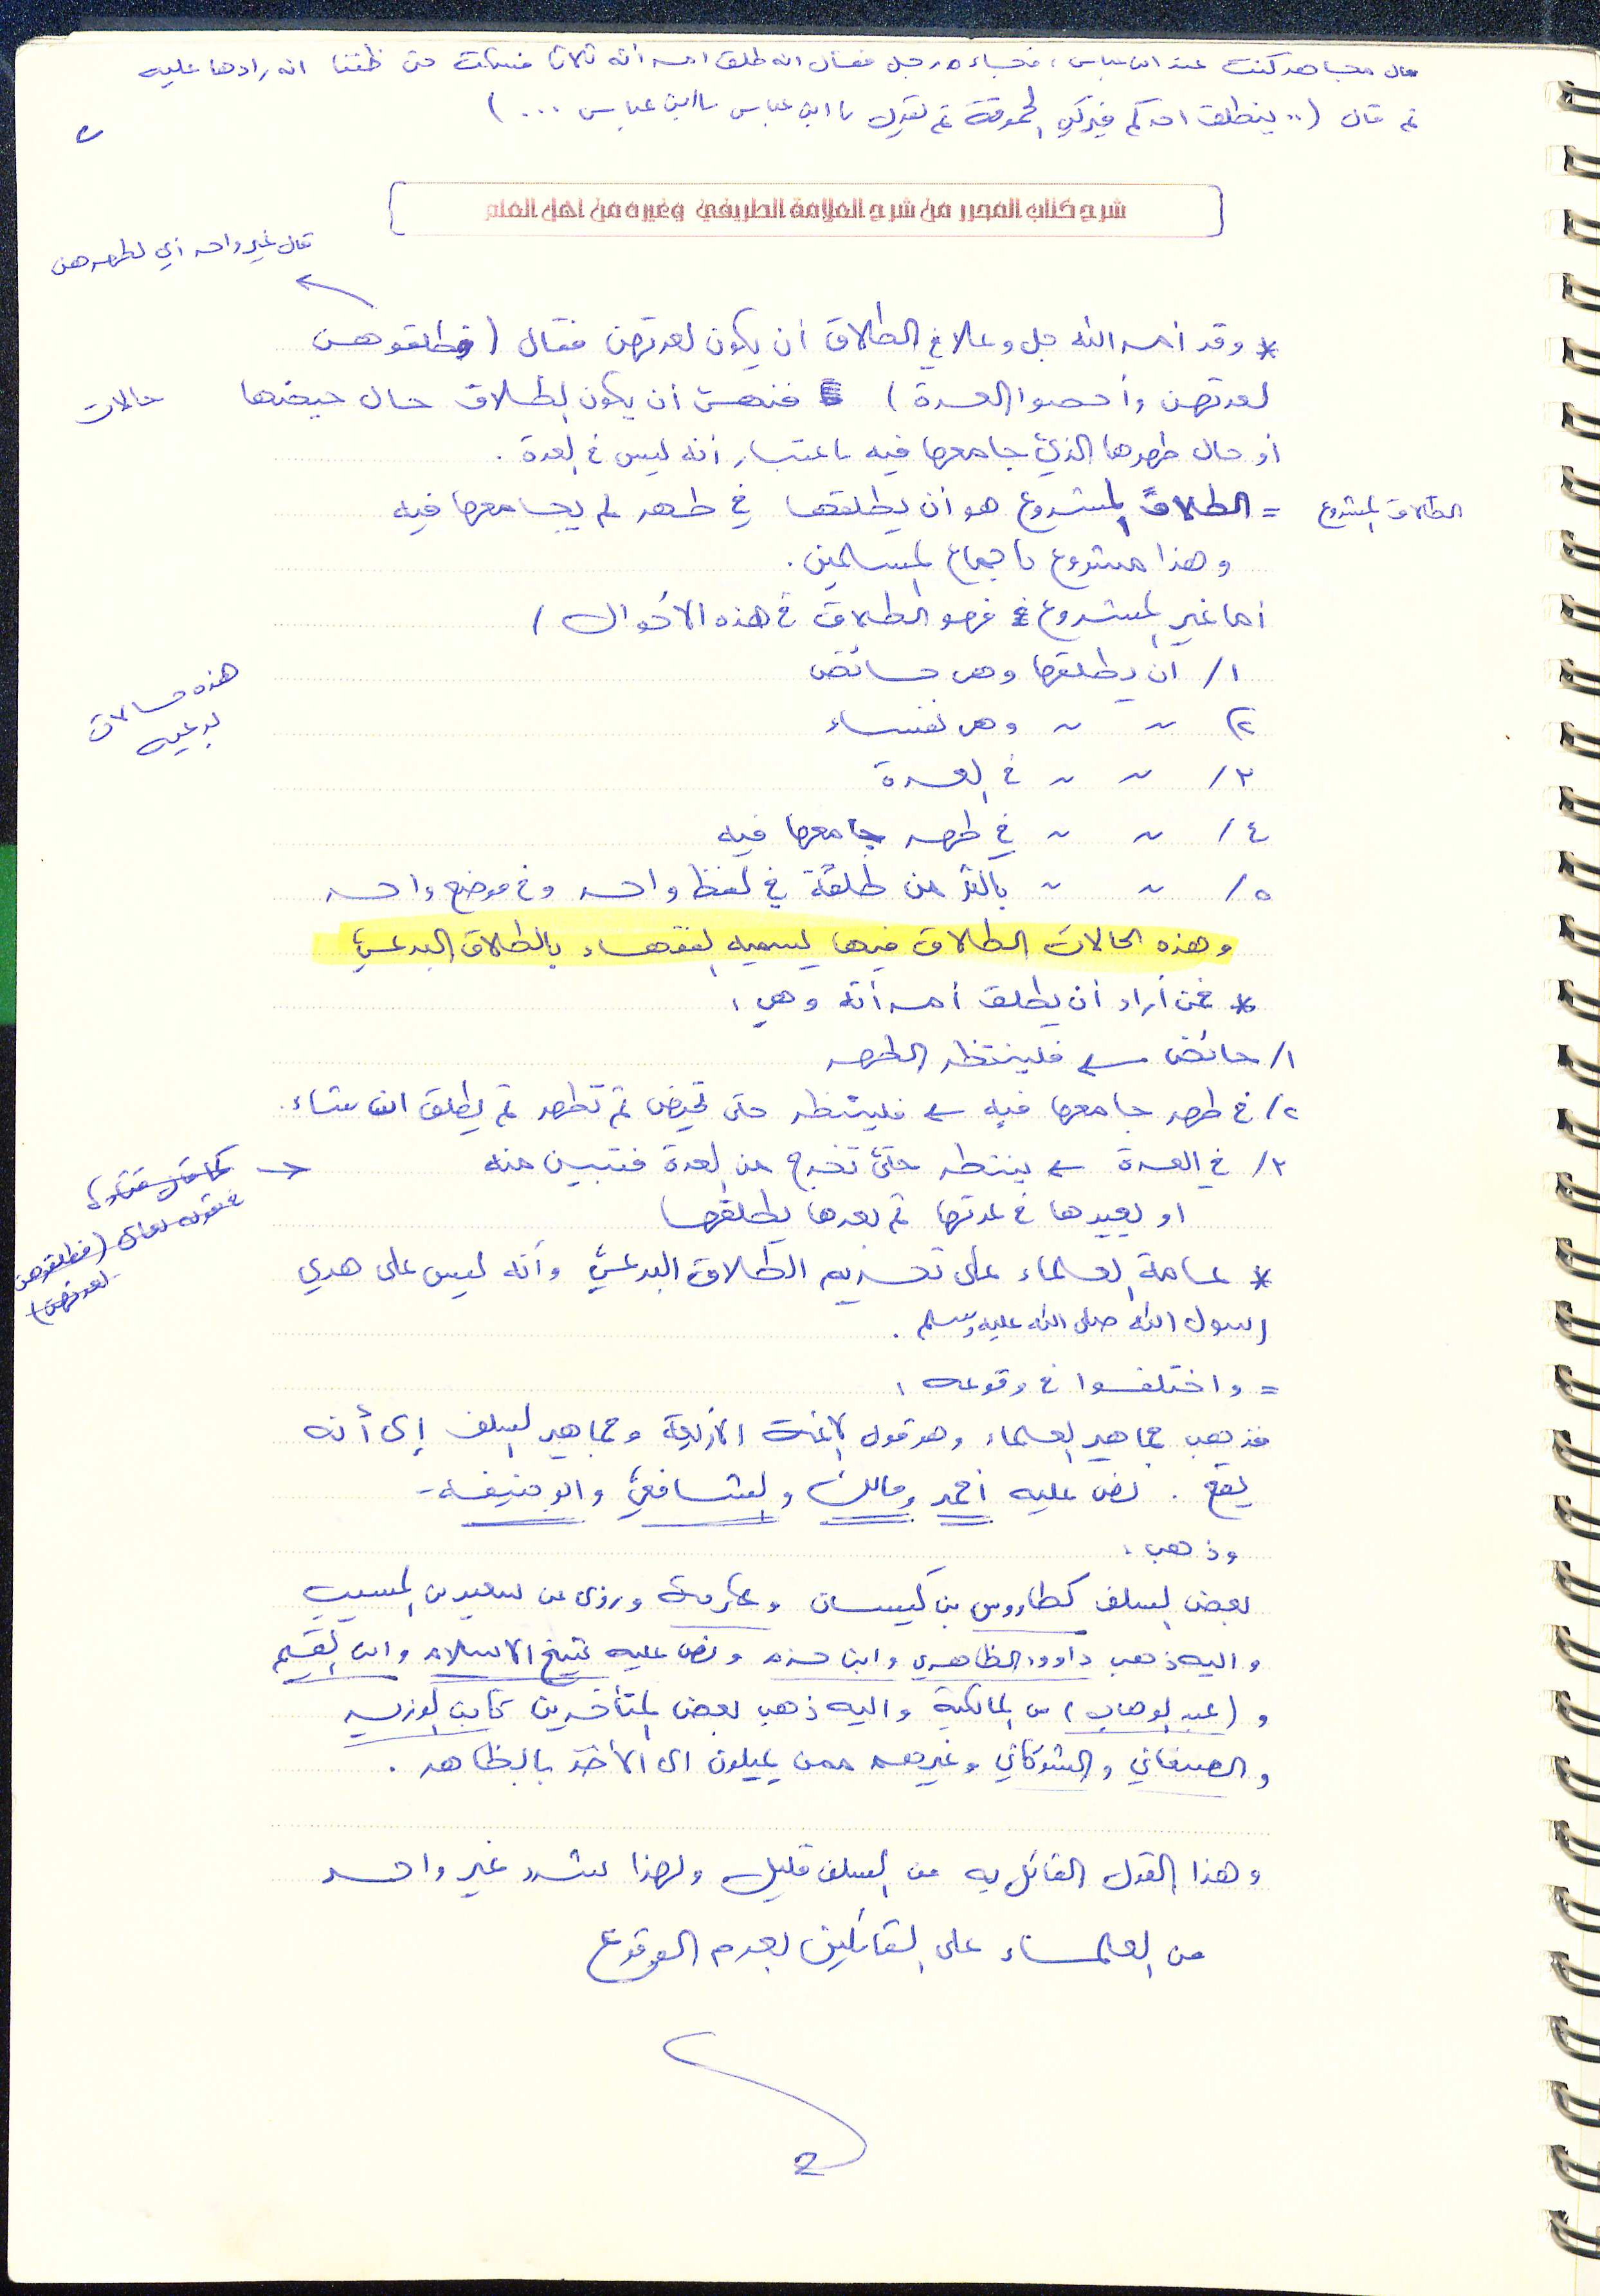 قال مجاهد كنت عند ابن عباس، فجاءه رجل فقال انه طلق امرأته ثلاثا فسكت حتى ظننا انه رادها عليه
ثم قال (.. ينطلق احدكم فيركب الحموقة ثم يقول يا ابن عباس يا ابن عباس ...)
٢
شرح كتاب المحرر من شرح العلامة الطريفي وغيره من اهل العلم
قال غير واحد أي لطهرهن
* وقد أمر الله جل وعلا في الطلاق أن يكون لعدتهن فقال (فطلقوهن
لعدتهن وأحصوا العدة) فنهى أن يكون الطلاق حال حيضها
حالات
أو حال طهرها الذي جامعها فيه باعتبار أنه ليس في العدة .
الطلاق المشروع
= الطلاق المشروع هو أن يطلقها في طهر لم يجامعها فيه
وهذا مشروع باجماع المسلمين .
أما غير المشروع فهو الطلاق في هذه الأحوال /
١/ أن يطلقها وهي حائض
٢) ~ ~ وهي نفساء
٣/ ~ ~ في العدة
٤/ ~ ~ في طهر جامعها فيه
٥/ ~ ~ بأكثر من طلقة في لفظ واحد وفي موضع واحد
هذه حالات
بدعيه
وهذه الحالات الطلاق فيها يسميه الفقهاء بالطلاق البدعي
* فمن أراد أن يطلق أمرأته وهي :
١/ حائض ← فلينتظر الطهر
٢/ في طهر جامعها فيه ← فلينتظر حتى تحيض ثم تطهر ثم يطلق ان شاء .
٣/ في العدة ← ينتظر حتى تخرج من العدة فتبين منه
او يعيدها في عدتها ثم بعدها يطلقها
كما قال قتادة
فطلقوهن
لعدتهن)
* عامة العلماء على تحريم الطلاق البدعي وأنه ليس على هدي
رسول الله صلى الله عليه وسلم .
= واختلفوا في وقوعه :
فذهب جماهير العلماء وهو قول الائمة الأربعة وجماهير السلف إلى أنه
يقع . نص عليه أحمد ومالك والشافعي وابو حنيفة -
وذهب :
بعض السلف كطاووس بن كيسان وعكرمة وروي عن سعيد بن المسيب
واليه ذهب داوود الظاهري وابن حزم ونص عليه شيخ الاسلام وابن القيم
و (عبد الوهاب) من المالكية واليه ذهب بعض المتأخرين كابن الوزير
والصنعاني والشوكاني وغيرهم ممن يميلون الى الأخذ بالظاهر .
وهذا القول القائل به من السلف قليل ولهذا شدد غير واحد
من العلماء على القائلين بعدم الوقوع
2